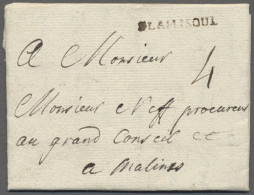 BLAMMONT
A Monsieur
4
Monsieur Neff procureur
au grand Conseil
a Malines